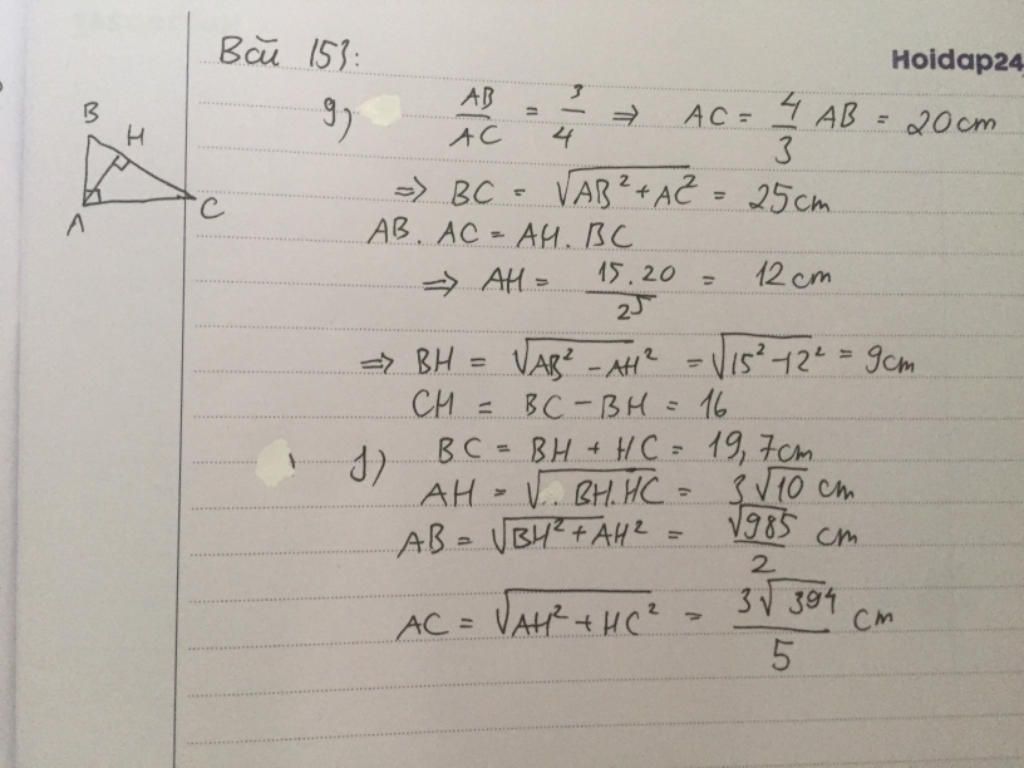 Bài 153:
Hoidap24
B
H
A
C
g) AB/AC = 3/4 ⇒ AC = 4/3 AB = 20cm
⇒ BC = √(AB² + AC²) = 25cm
AB. AC = AH. BC
⇒ AH = 15.20/25 = 12cm
⇒ BH = √(AB² - AH²) = √(15² - 12²) = 9cm
CH = BC - BH = 16
1) BC = BH + HC = 19,7cm
AH = √(BH.HC) = 3√10 cm
AB = √(BH² + AH²) = √985/2 cm
AC = √(AH² + HC²) = 3√394/5 cm